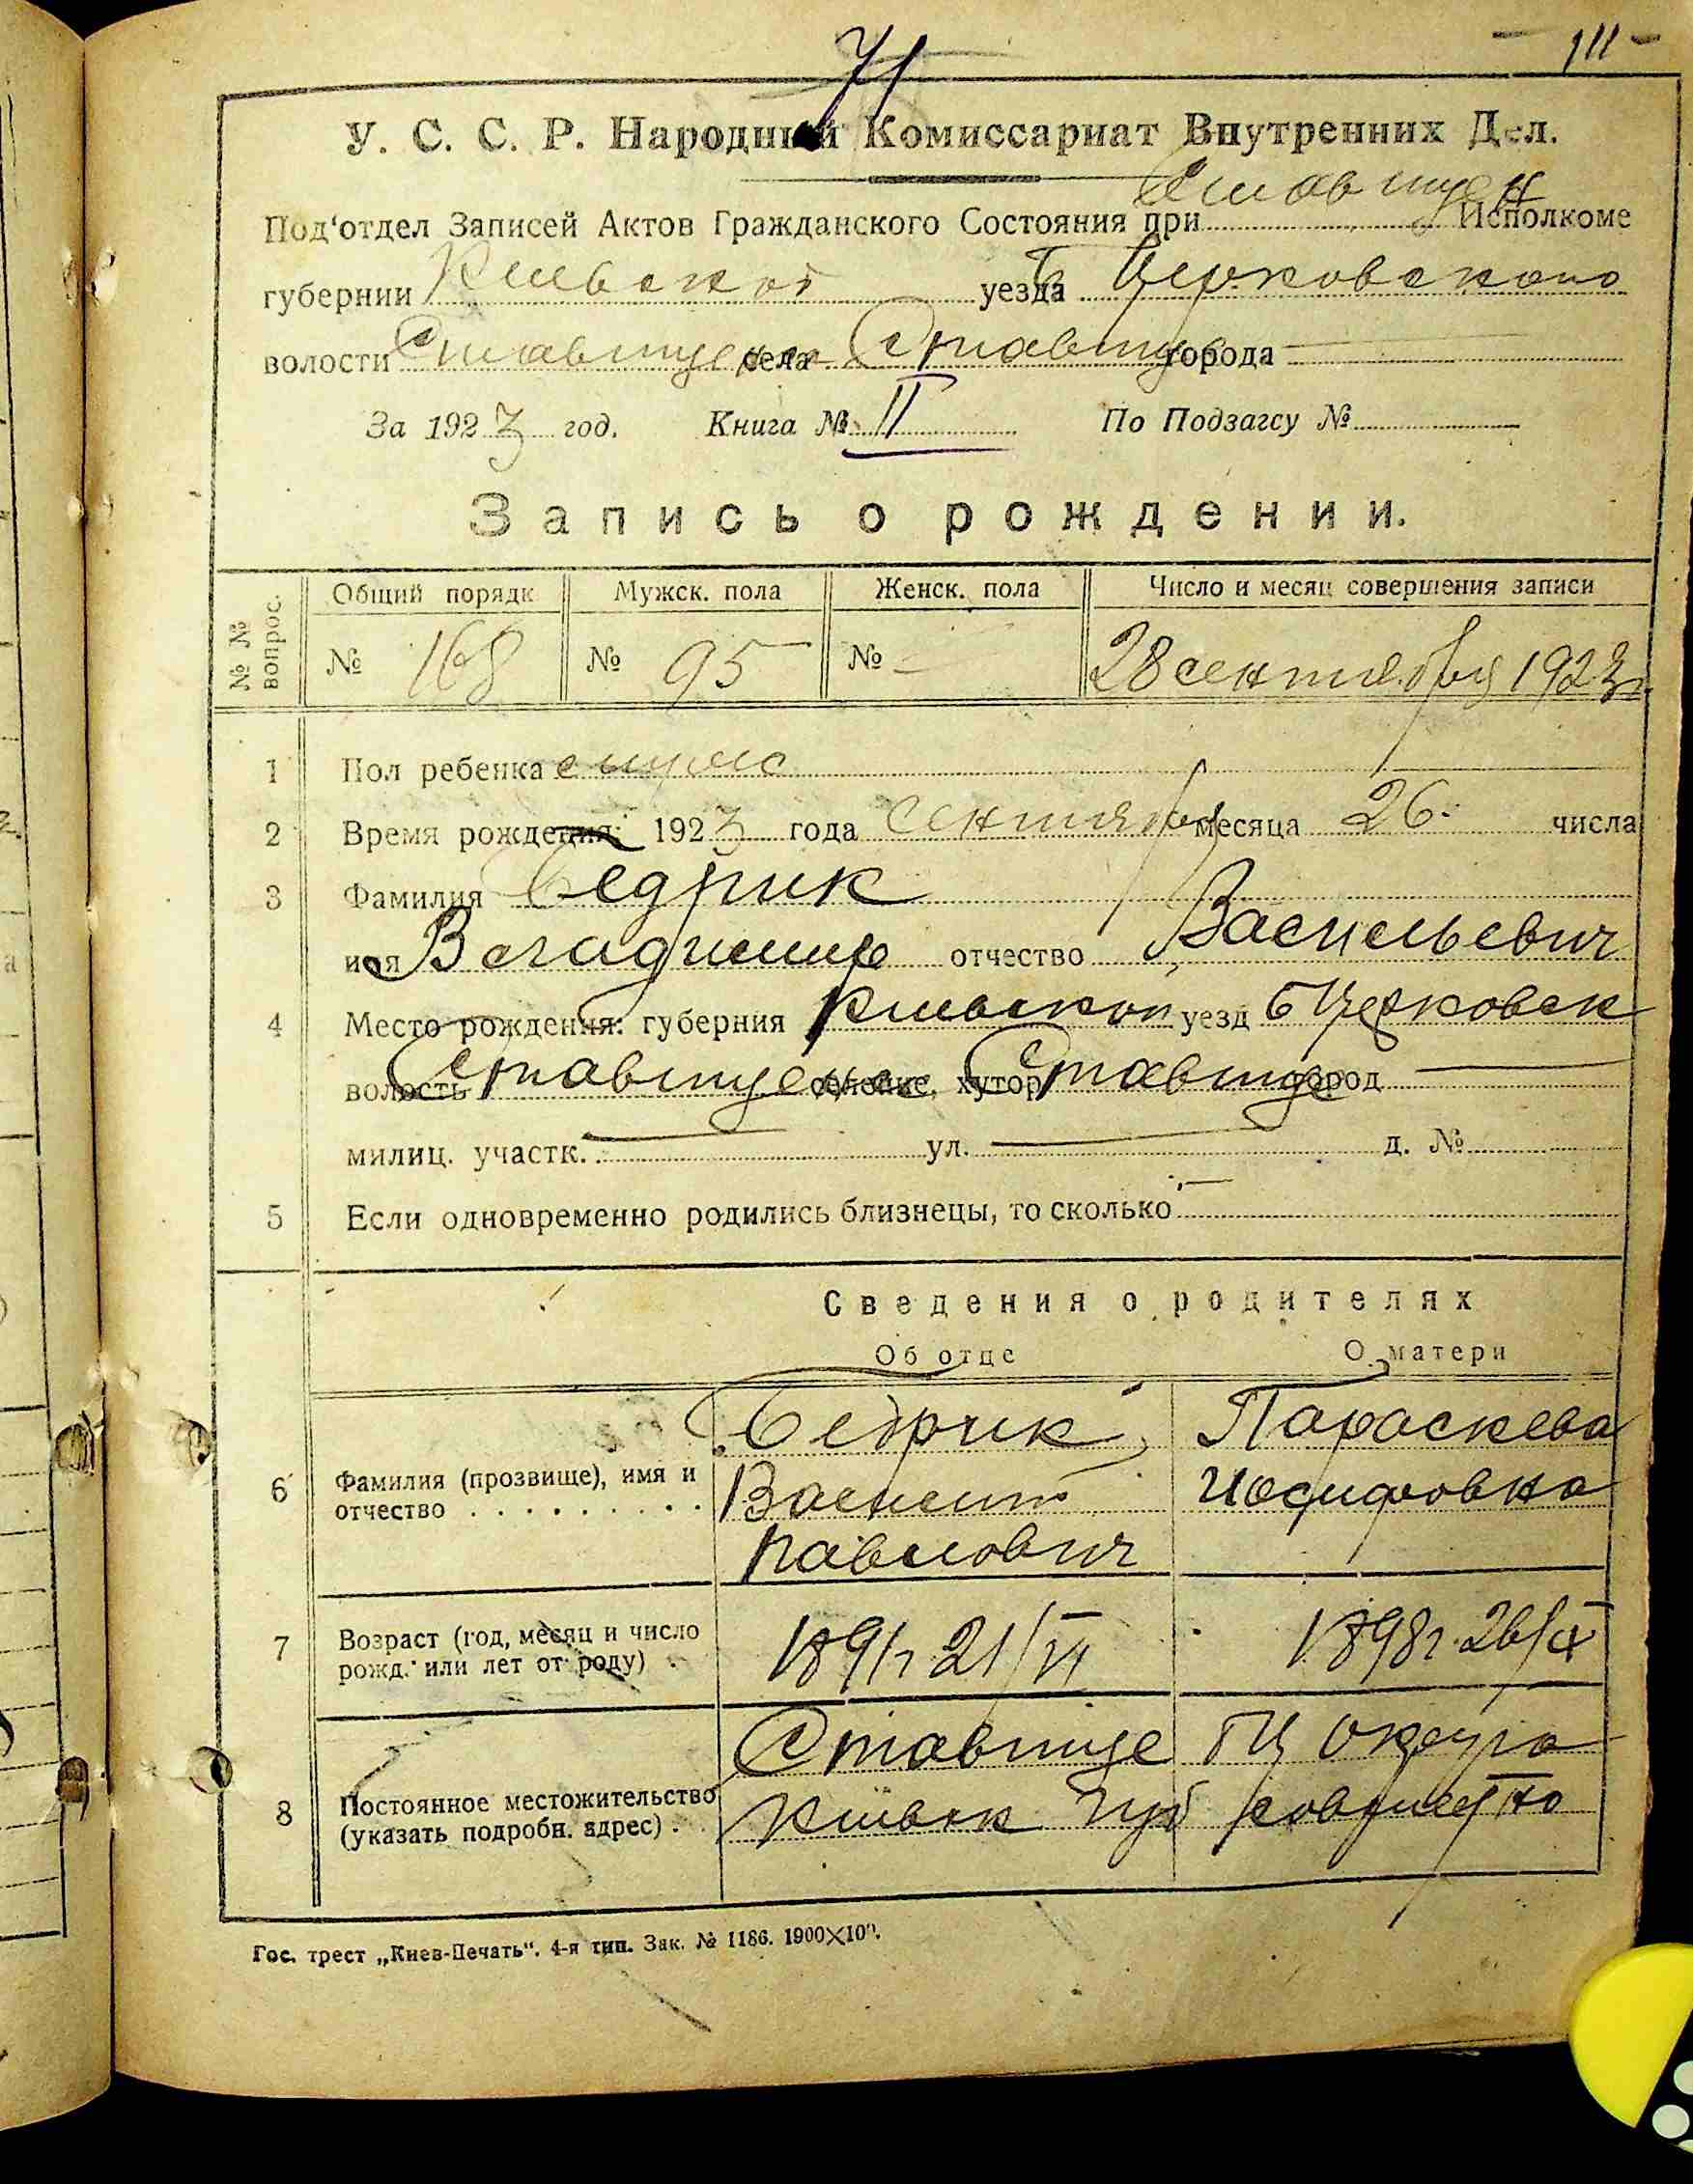 71
111
У. С. С. Р. Народный Комиссариат Внутренних Дел.
Под'отдел Записей Актов Гражданского Состояния при Ставищен Исполкоме
губернии Киевской уезда Б Церковского
волости Ставищенск села Ставище города —
За 1923 год. Книга № II По Подзагсу №
Запись о рождении.
№ № вопрос. Общий порядк Мужск. пола Женск. пола Число и месяц совершения записи
№ 168 № 95 № - 28 сентября 1923 г.
1 Пол ребенка
2 Время рождения: 1923 года сентября месяца 26. числа
3 Фамилия Бедрик
имя Владимир отчество Васильевич
4 Место рождения: губерния Киевской уезд Б Церковск
волость Ставищенск селение, хутор Ставище город —
милиц. участк. — ул. — д. №
5 Если одновременно родились близнецы, то сколько —
Сведения о родителях
Об отце О матери
6 Фамилия (прозвище), имя и отчество
Бедрик Параскева
Василий Иосифовна
Павлович
7 Возраст (год, месяц и число рожд. или лет от роду) 1891 г 21/VI 1898 г. 26/IX
8 Постоянное местожительство (указать подробн. адрес)
Ставище БЦ округа
Киевск Губ совместно
Гос. трест „Киев-Печать“. 4-я тип. Зак. № 1186. 1900×10⁰.